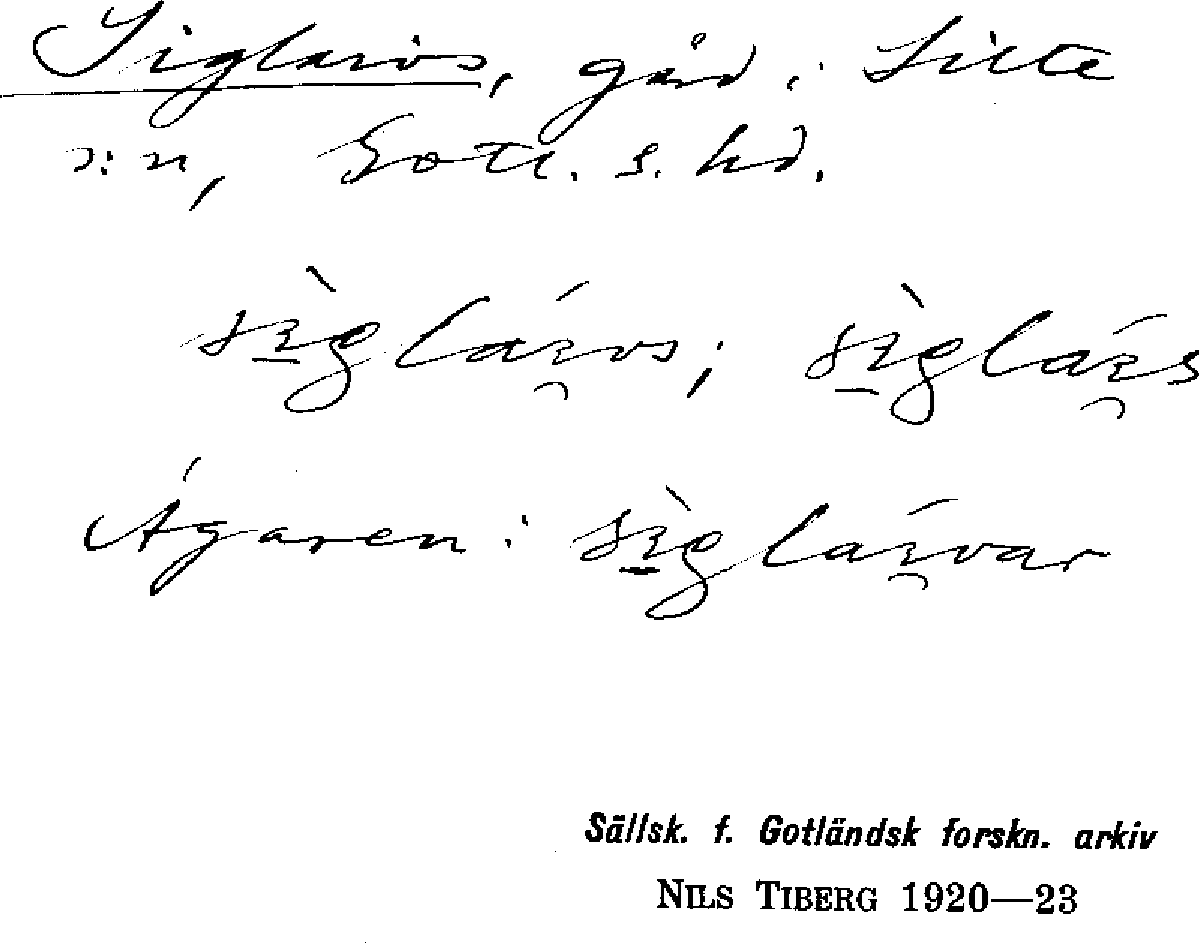 Siglaivs, gård i Silte
s:n, Gotl. s. hd.
sìgláıvs; sìgláıs
Ägaren: sìgláıvar
Sällsk. f. Gotländsk forskn. arkiv
NILS TIBERG 1920—23